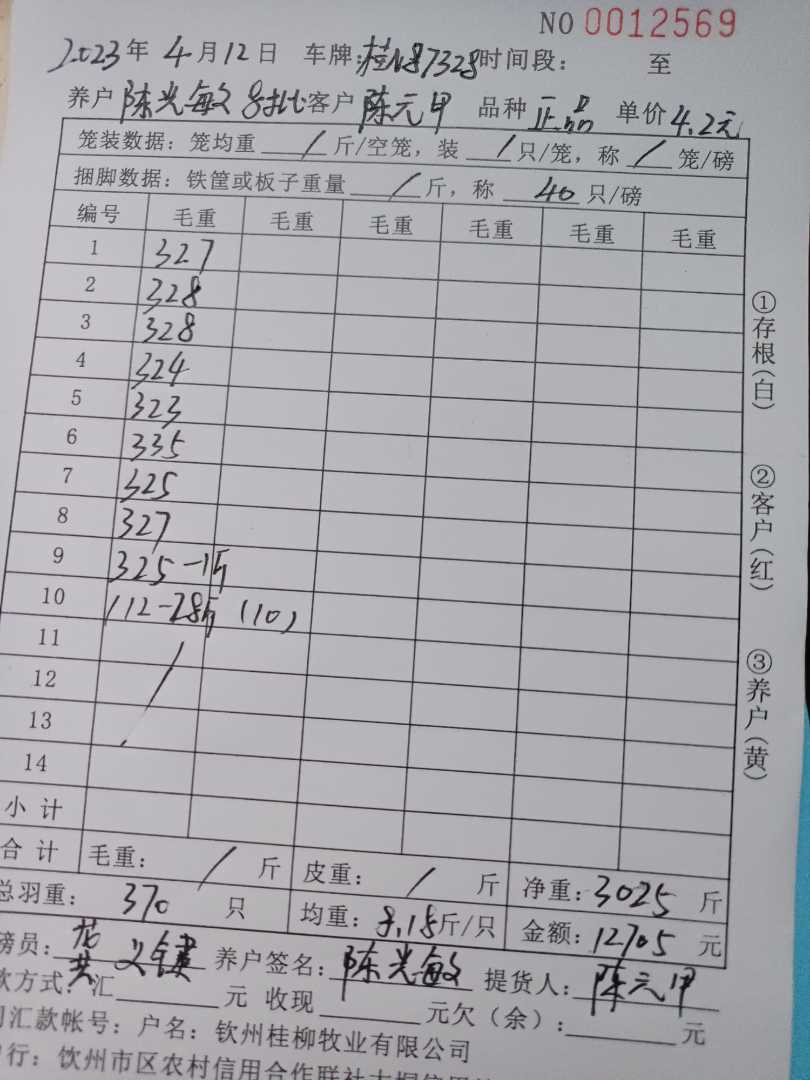 NO 0012569
2023年 4月12日 车牌:桂N87328 时间段: 至
养户 陈光敏 8批 客户 陈元甲 品种 正品 单价 4.2元
笼装数据:笼均重 / 斤/空笼,装 / 只/笼,称 / 笼/磅
捆脚数据:铁筐或板子重量 / 斤,称 40 只/磅
编号 毛重 毛重 毛重 毛重 毛重 毛重
1 327
2 328
3 328
4 324
5 323
6 335
7 325
8 327
9 325-1斤
10 112-28斤(10)
11
12
13
14
小计
合计 毛重: / 斤 皮重: / 斤 净重:3025斤
总羽重: 370 只 均重:8.18斤/只 金额:12705元
磅员: 义键 养户签名:陈光敏 提货人:陈元甲
款方式:汇 元 收现 元欠(余): 元
司汇款帐号:户名:钦州桂柳牧业有限公司
行:钦州市区农村信用合作联社大垌信用
①存根(白)
②客户(红)
③养户(黄)